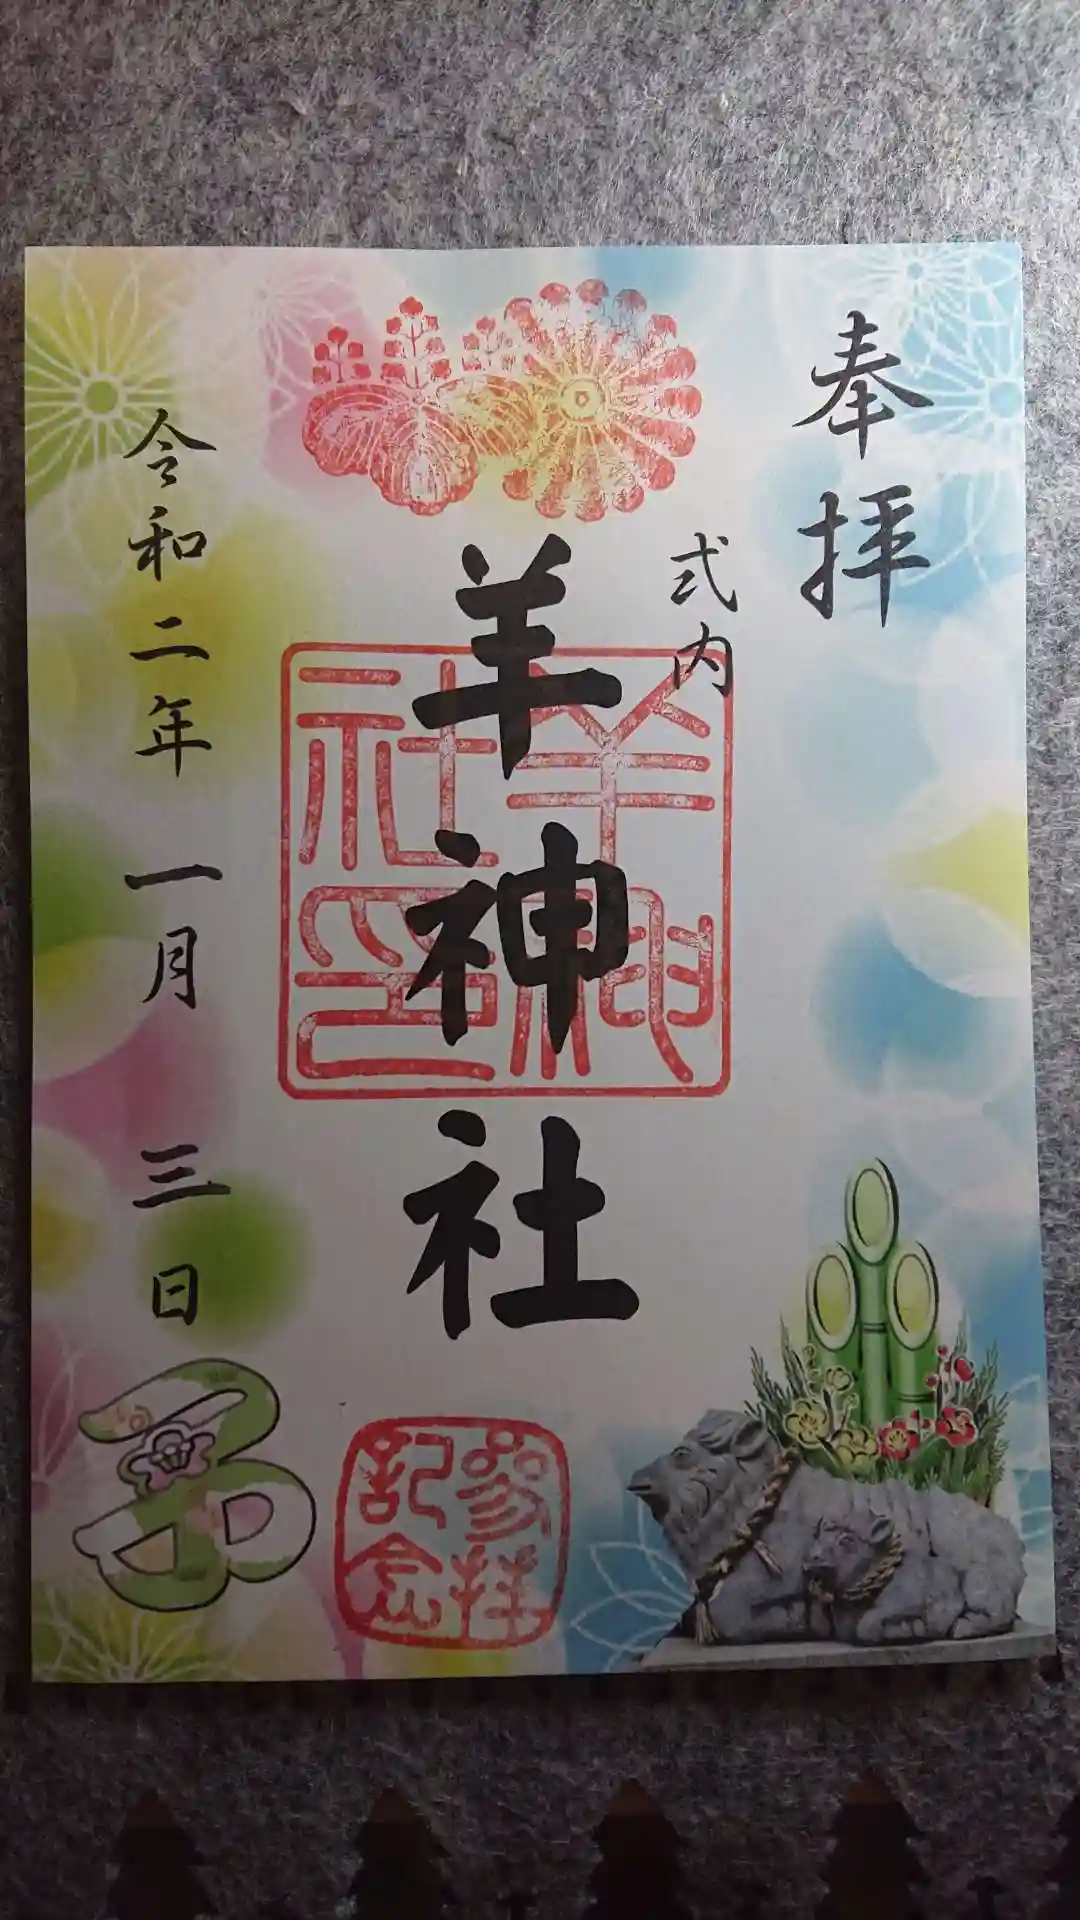 奉拝
式内
羊神社
羊神
社印
令和二年 一月 三日
参拝
記念
子